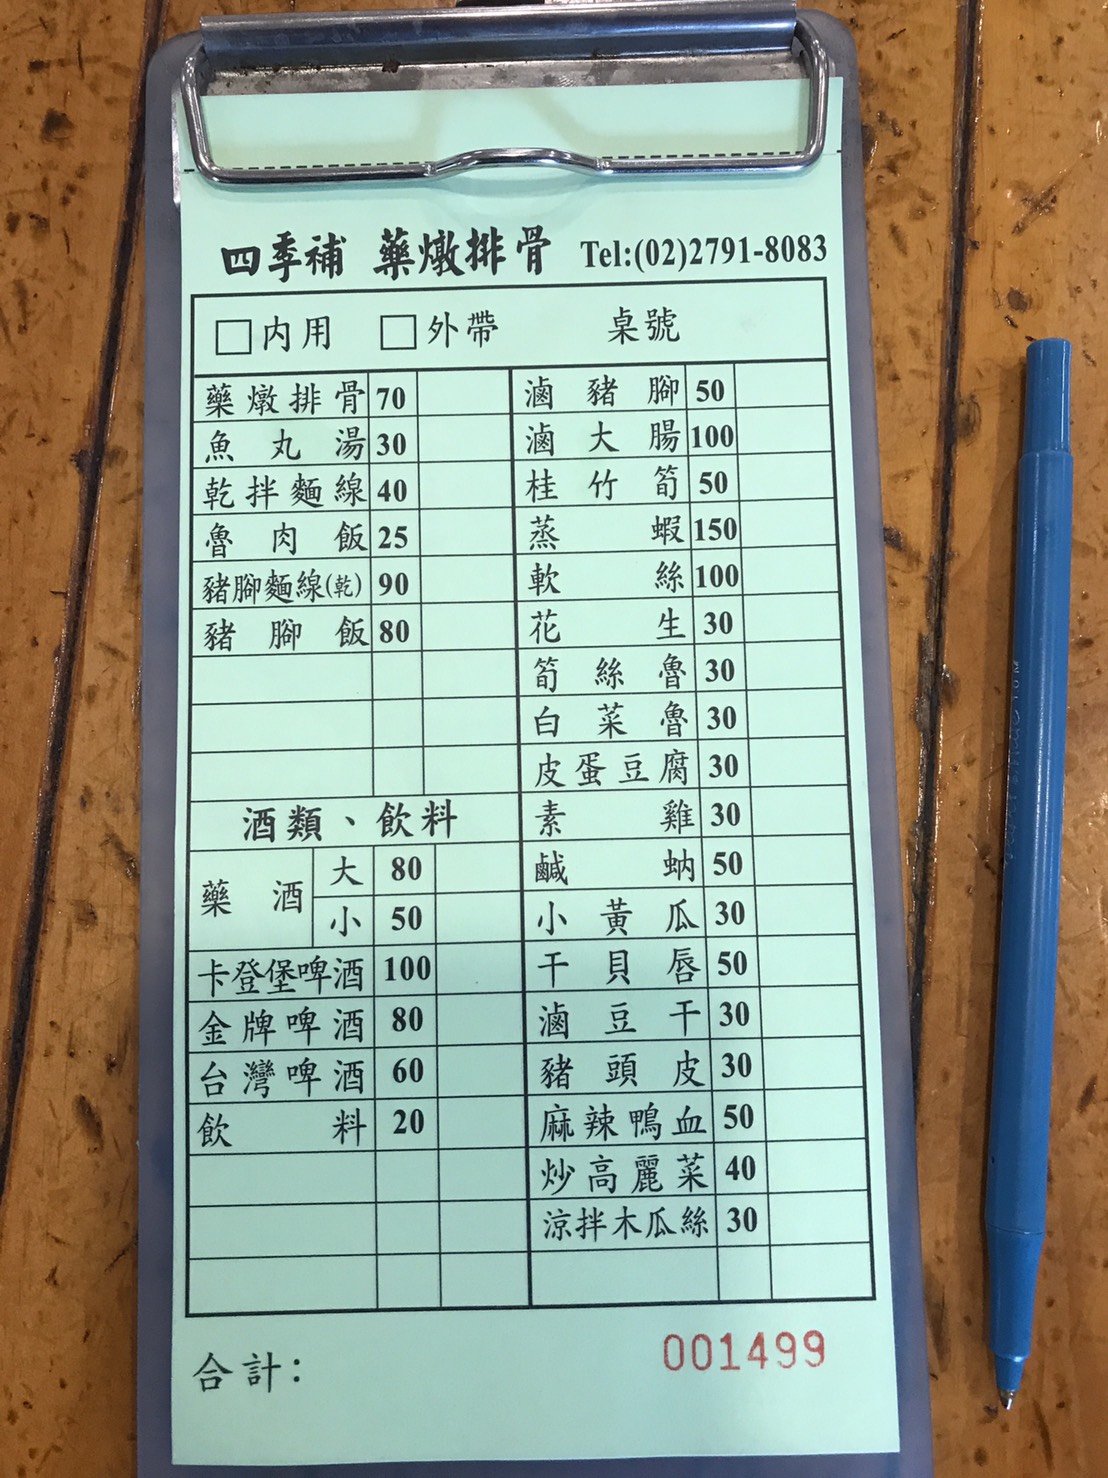 四季補 藥燉排骨 Tel:(02)2791-8083
□內用 □外帶 桌號
藥燉排骨 70
魚丸湯 30
乾拌麵線 40
魯肉飯 25
豬腳麵線(乾) 90
豬腳飯 80
酒類、飲料
藥酒 大 80
小 50
卡登堡啤酒 100
金牌啤酒 80
台灣啤酒 60
飲料 20
滷豬腳 50
滷大腸 100
桂竹筍 50
蒸蝦 150
軟絲 100
花生 30
筍絲魯 30
白菜魯 30
皮蛋豆腐 30
素雞 30
鹹蚋 50
小黃瓜 30
干貝唇 50
滷豆干 30
豬頭皮 30
麻辣鴨血 50
炒高麗菜 40
涼拌木瓜絲 30
合計:
001499